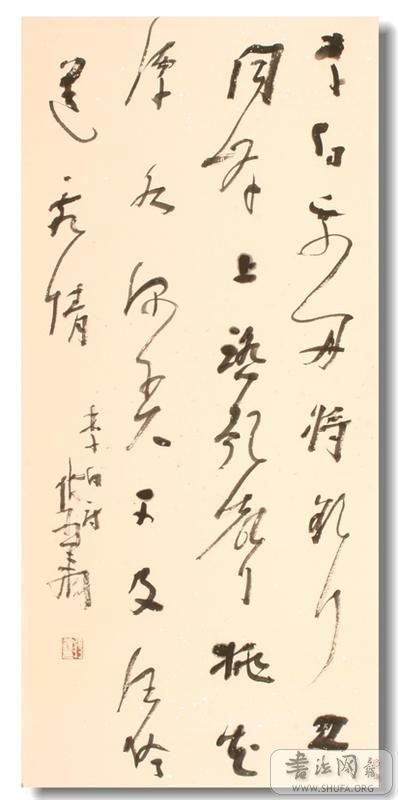 李白乘舟将欲行忽
闻岸上踏歌声桃花
潭水深千尺不及汪伦
送我情
李白诗
书法网
WWW.SHUFA.ORG